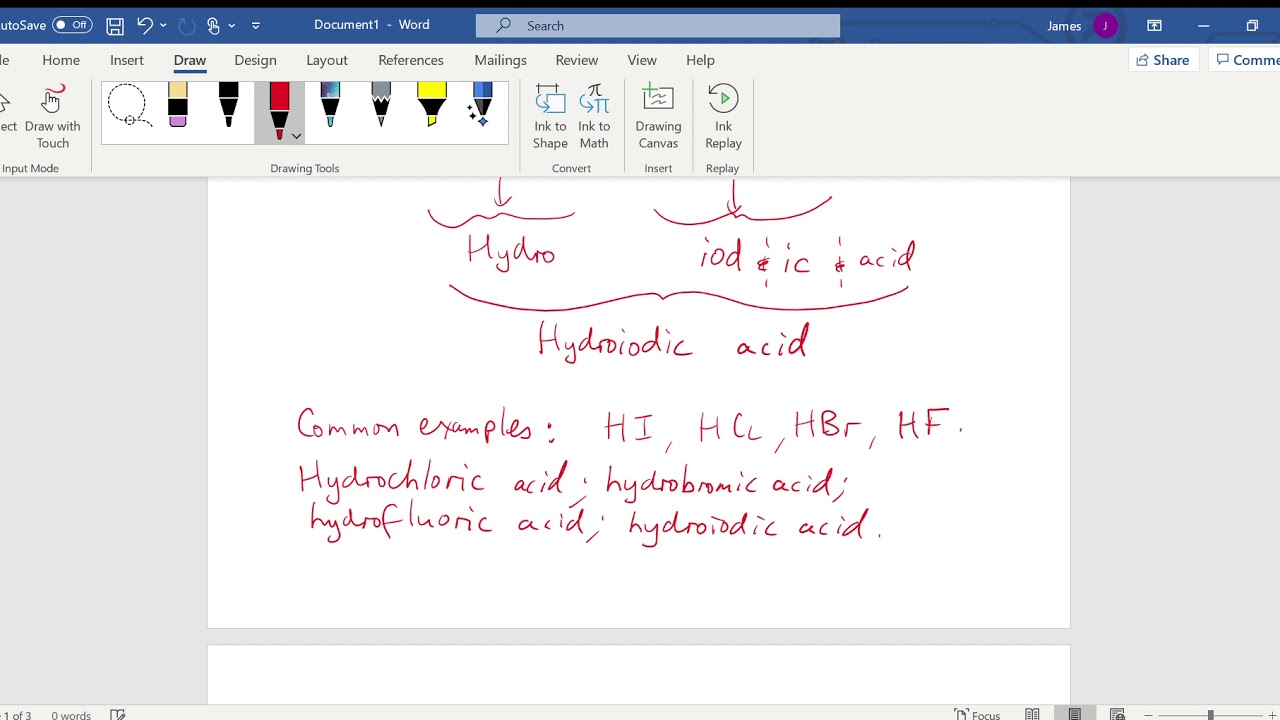 AutoSave Off Document1 - Word Search James J
le Home Insert Draw Design Layout References Mailings Review View Help Share Comme
ect Draw with Touch Ink to Shape Ink to Math Drawing Canvas Ink Replay
Input Mode Drawing Tools Convert Insert Replay
Hydro iod ic acid
Hydroiodic acid
Common examples: HI, HCl, HBr, HF.
Hydrochloric acid; hydrobromic acid;
hydrofluoric acid; hydroiodic acid.
e 1 of 3 0 words Focus